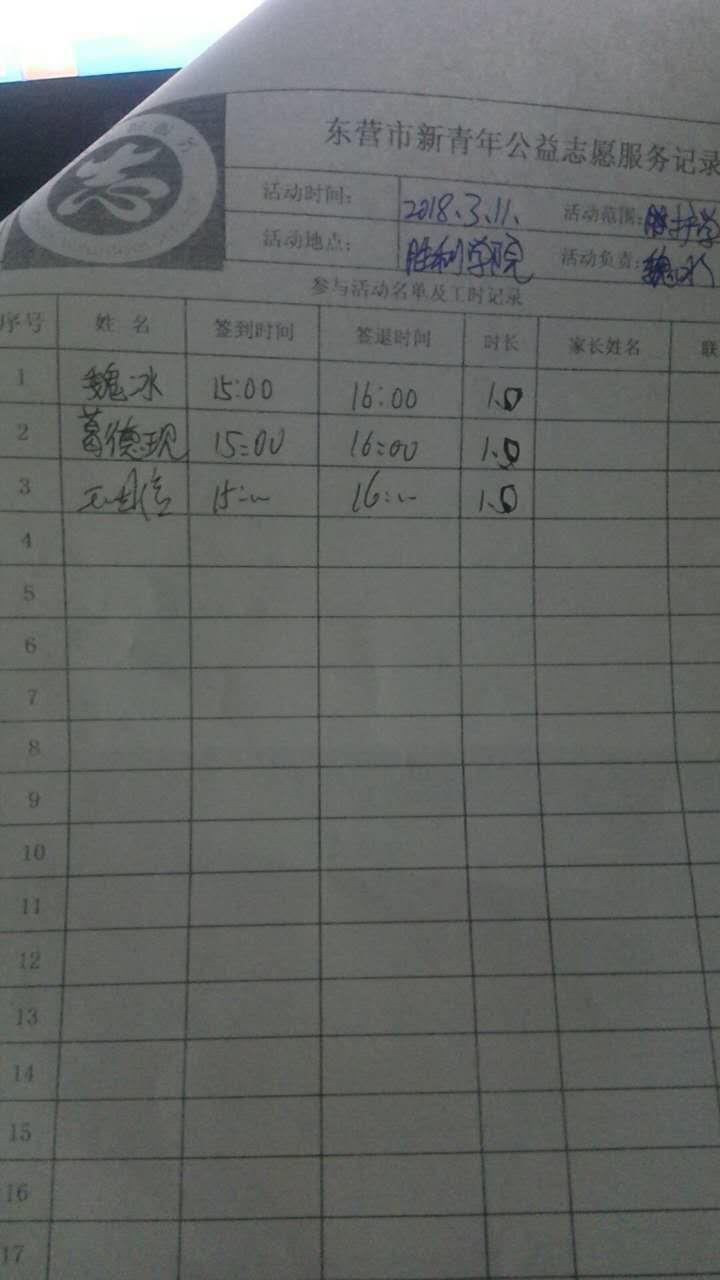 东营市新青年公益志愿服务记录
活动时间: 2018.3.11. 活动范围:
活动地点: 胜利学院 活动负责: 魏冰
参与活动名单及工时记录
序号 姓名 签到时间 签退时间 时长 家长姓名 联
1 魏冰 15:00 16:00 1.0
2 葛德现 15:00 16:00 1.0
3 15: 16: 1.0
4
5
6
7
8
9
10
11
12
13
14
15
16
17